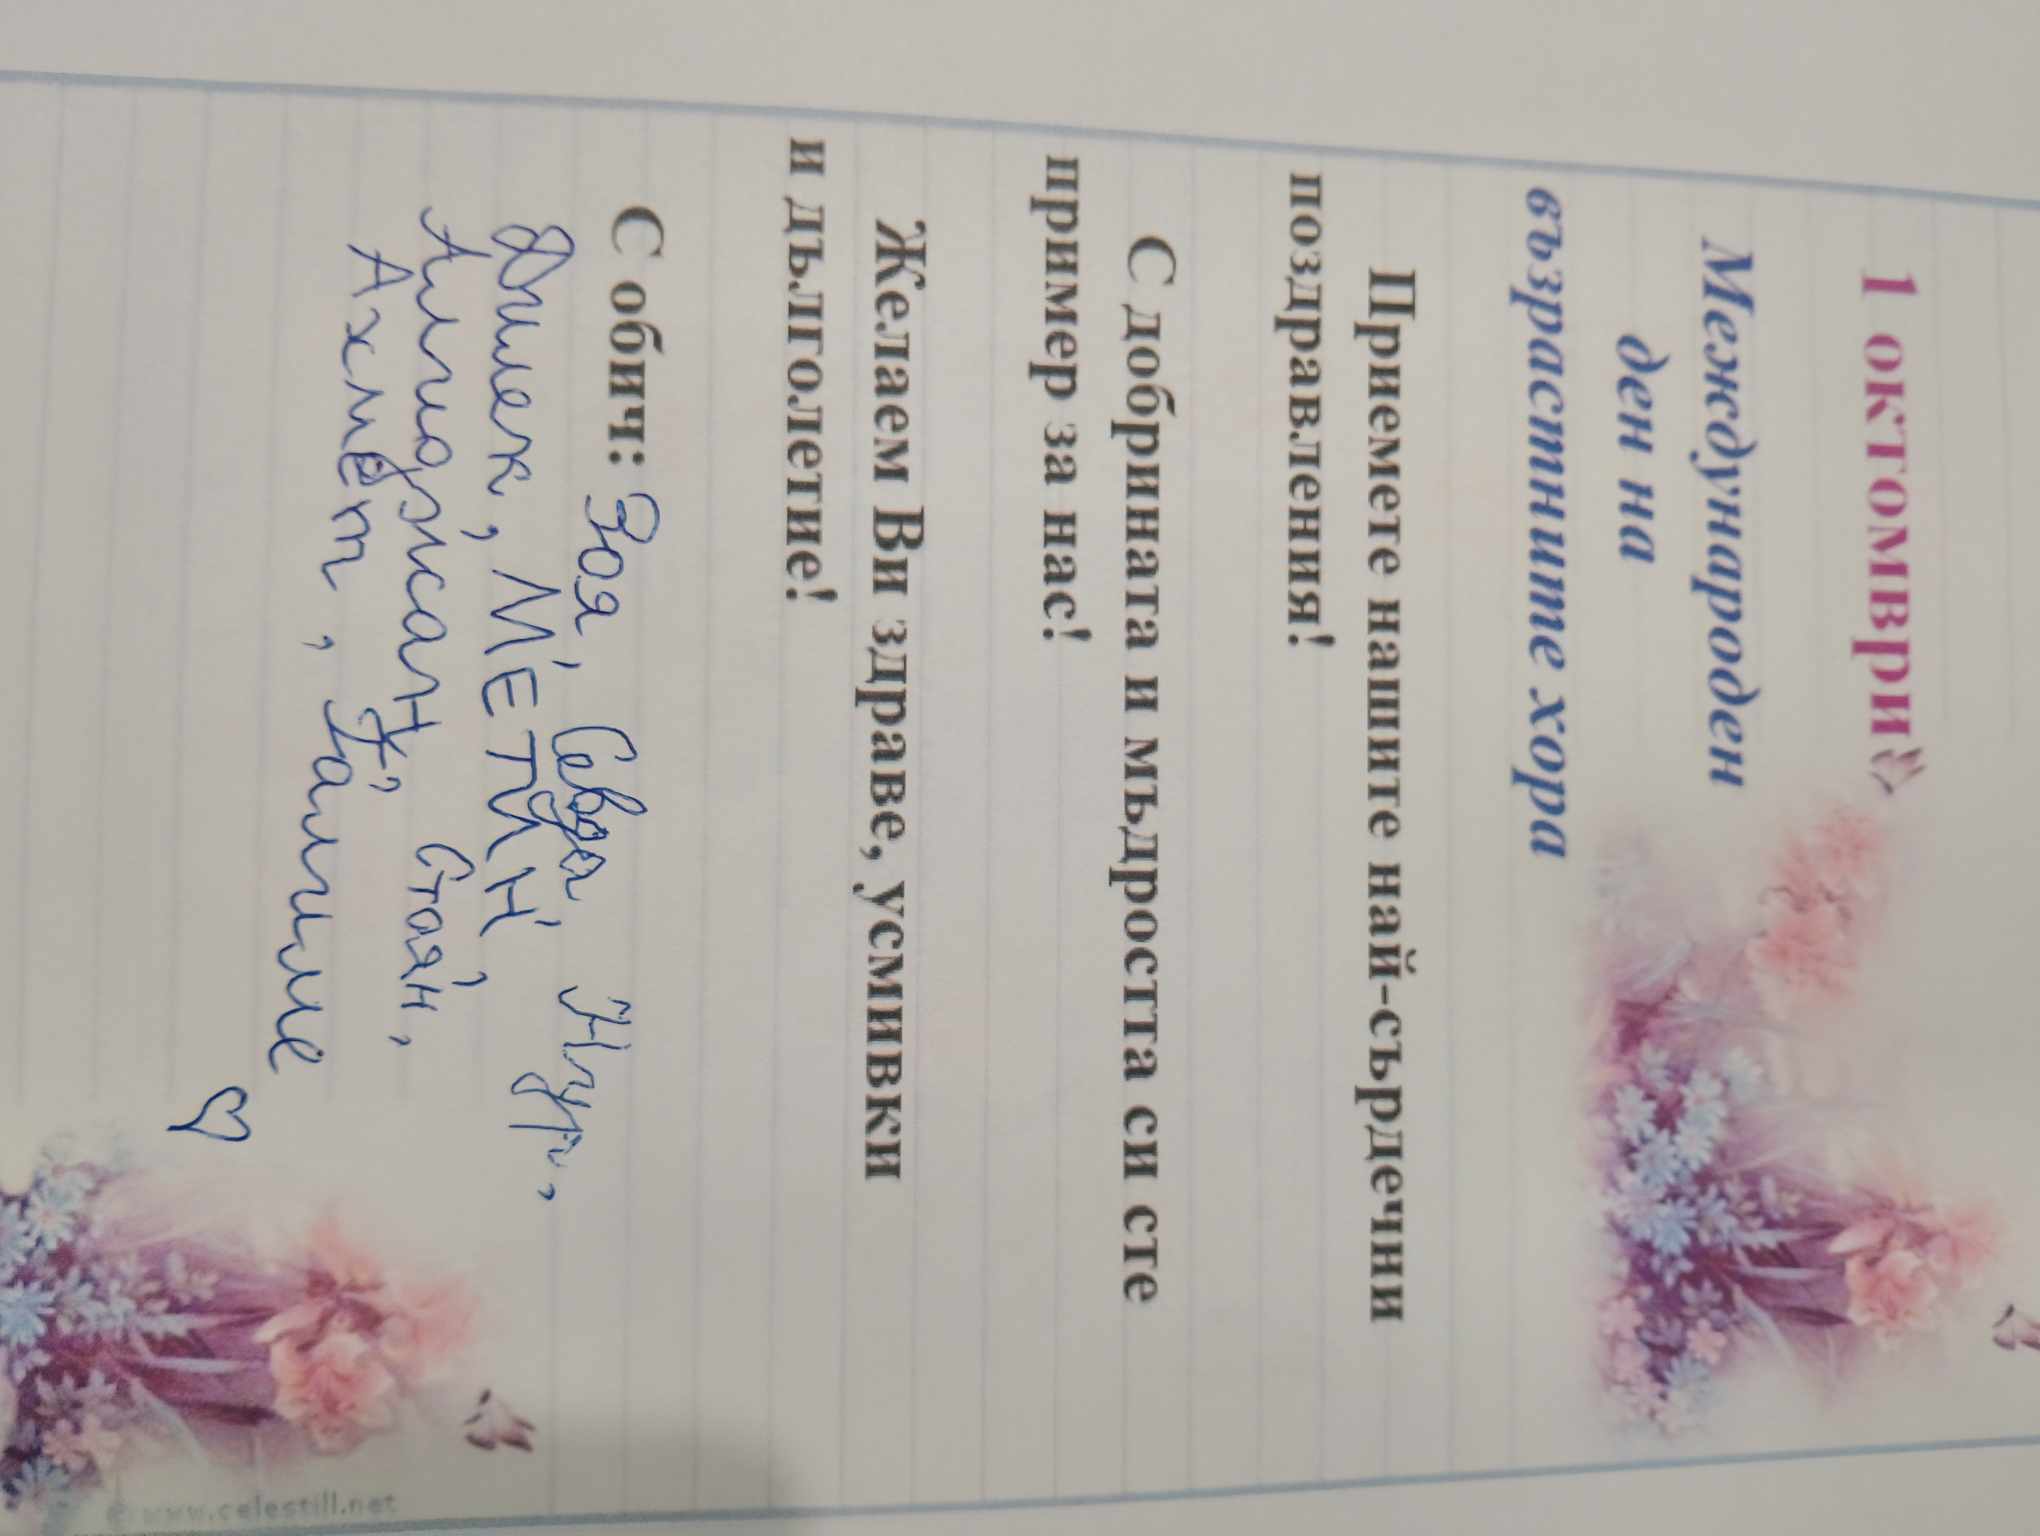 1 октомври
Международен
ден на
възрастните хора
Приемете нашите най-сърдечни
поздравления!
С добрината и мъдростта си сте
пример за нас!
Желаем Ви здраве, усмивки
и дълголетие!
С обич: Зоя, Севда, Нур,
Дилек, МЕТИН,
Алиджан, Стоян,
Ахмет, Галиме
© www.celestill.net